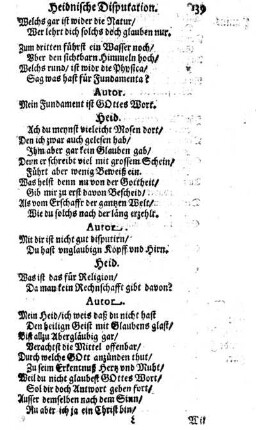 Heidnische Disputation. 139
Welchs gar ist wider die Natur/
Wer lehrt dich solchs doch glauben nur.
Zum dritten führst ein Wasser noch/
Vber den sichtbarn Himmeln hoch/
Welchs rund/ ist widr die Physica/
Sag was hast für Fundamenta?
Autor.
Mein Fundament ist GOttes Wort.
Heid.
Ach du meynst vieleicht Mosen dort/
Den ich zwar auch gelesen hab/
Ihm aber gar kein Glauben gab/
Denn er schreibt viel mit grossem Schein/
Führt aber wenig Beweiß ein.
Was helst denn nu von der Gottheit/
Gib mir zu erst davon Bescheid/
Als vom Erschaffr der gantzen Welt/
Wie du solchs nach der läng erzehlt.
Autor.
Mit dir ist nicht gut disputirn/
Du hast vnglaubign Kopff vnd Hirn.
Heid.
Was ist das für Religion/
Da man kein Rechnschafft gibt davon?
Autor.
Mein Heid/ ich weis daß du nicht hast
Den heilign Geist mit Glaubens glast/
Bist allzu Abergläubig gar/
Verachst die Mittel offenbar/
Durch welche GOtt anzünden thut/
Zu seim Erkentnuß Hertz vnd Muht/
Weil du nicht glaubest GOttes Wort/
Sol dir doch Antwort geben fort/
Ausser demselben nach dem Sinn/
Nu aber ich ja ein Christ bin/
Mit